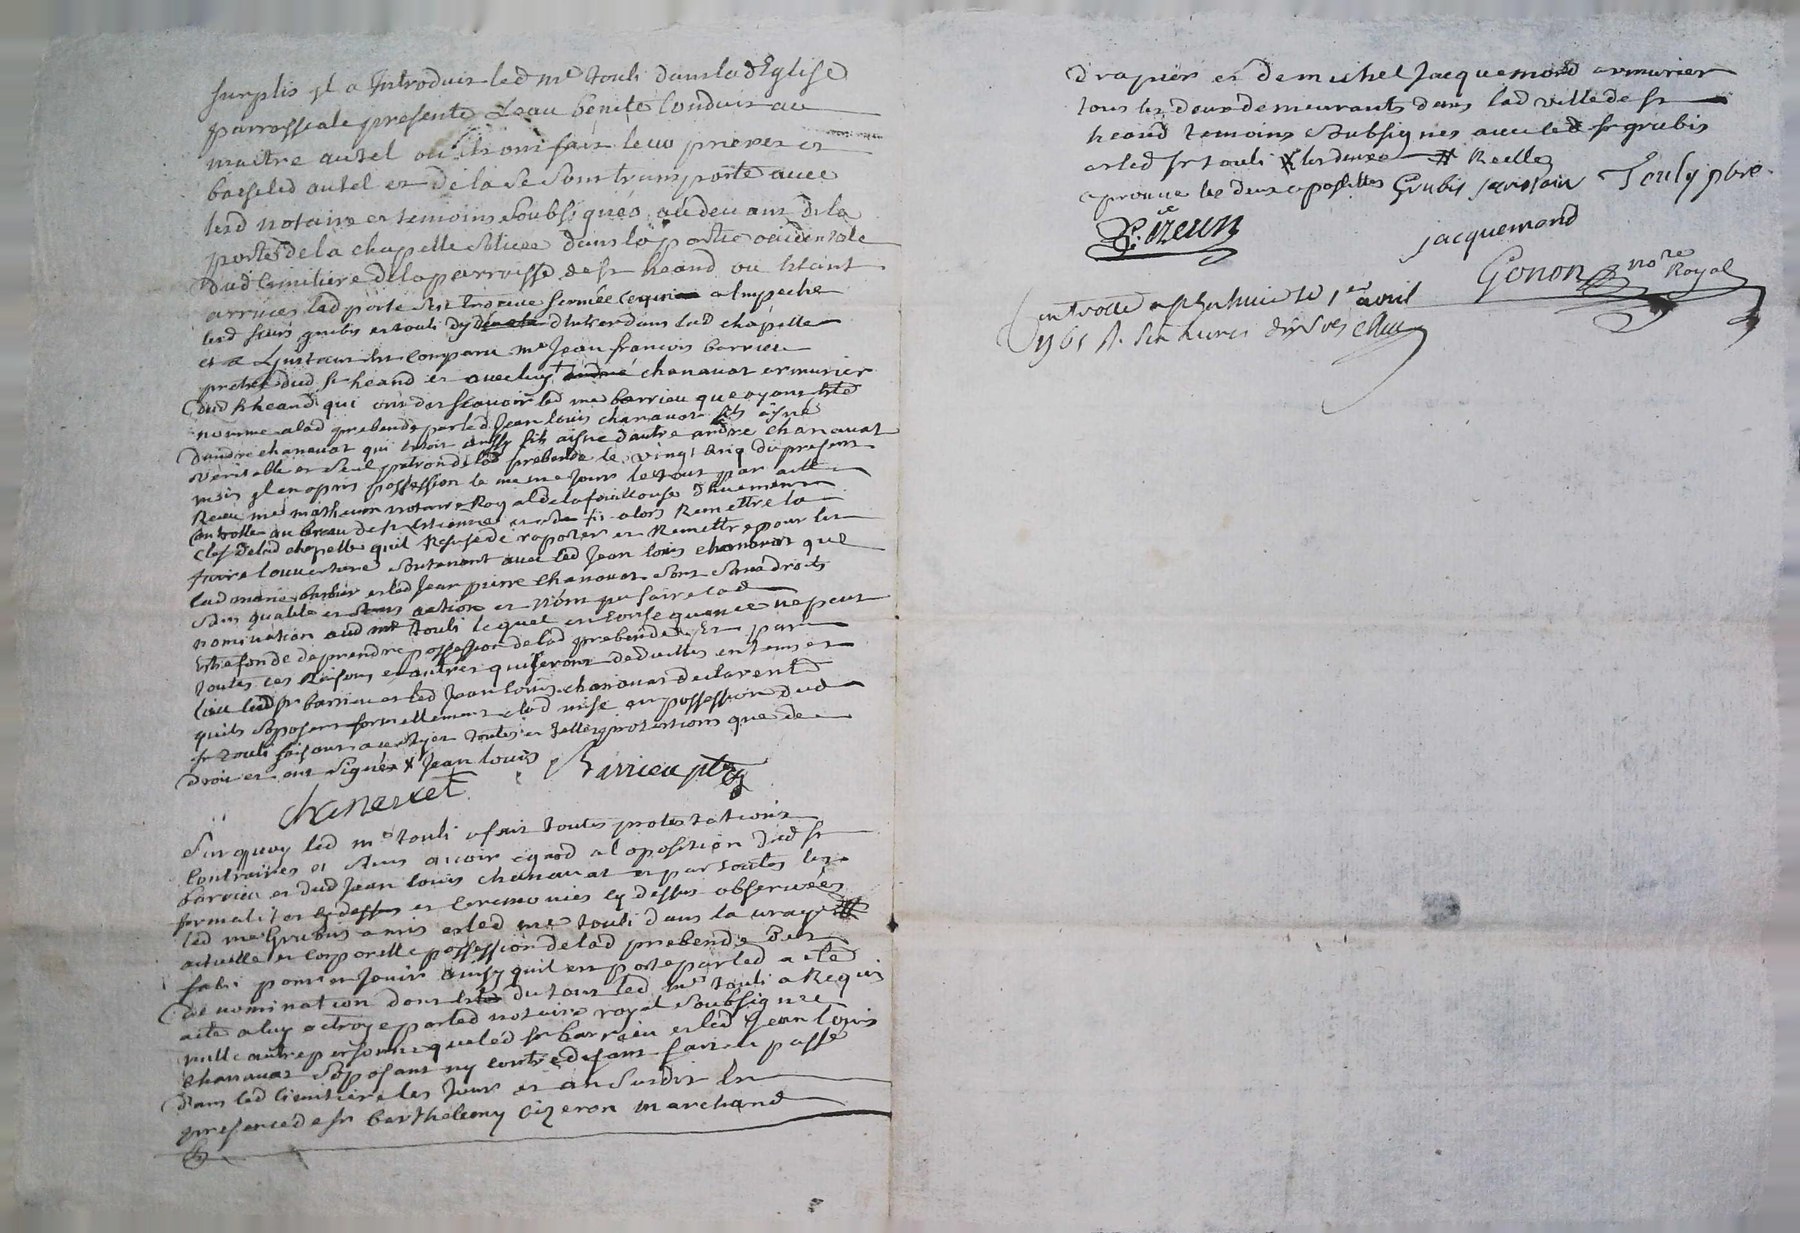 surplis yl a Introduit led me touli dans lad Eglise
parrossiale presente Leau benite Conduit au
maitre autel ou ils ont fait leur prieres et
baise led autel et de la se sont transporté avec
led notaire et temoins soubsignés au devant de la
porte de la chapelle scituee dans la partie occidentale
dud Cimitiere de la parroisse de st heand ou Etant
arrives lad porte sest trouvee fermée Ce qui a Impeché
led sieurs grubis et touli dy dentrer dans lad chapelle
et a Linstant est comparu me Jean francois barrieu
pretre dud st heand et avec luy andré chanavat armurier
dud st heand qui ont dit scavoir led me barrieu que ayant Eté
nommé a lad prebende par led Jean louis chanavat fils ayné
dandre chanavat qui Etoit aussy fils aisne dautre andre chanavat
veritable et seul patron de lad prebende le vingt cinq du present
mois yl en a pris possession le meme jour le tout par acte
Receu me mathevon notaire Royal de la fouillouse duement
Controllé au bureau de st Estienne alors Remettre la
Clef de lad chapelle quil Refuse de raporter et Remettre pour en
faire louverture soutenant avec led Jean louis chanavat que
lad marie et led Jean pierre chanavat sont sans droits
sans qualité et sans action et nont pu faire lad
nomination aud me touli lequel en Consequence ne peut
Estre fondé de prendre possession de lad prebende Et par
toutes ces Raisons et autres qui seront deduites en tems et
lieu led sr barrieu et led Jean louis chanavat declarent
quils soposent formellement a lad mise en possession dud
sr touli faisant a cet effet toutes et telles protestations que de
Droit et ont signé x Jean louis Barrieu ptre
chanavat
Sur quoy led me touli a fait toutes protestations
Contraires et sans avoir egard a loposition dud sr
barrieu et dud Jean louis chanavat et par toutes les
formalites cy dessus et Ceremonies cy dessus observées
led me Grubis a mis et led me touli dans la vraye #
actuelle et corporelle possession de lad prebende
pour en Jouir ainsy quil est porté par led acte
de nomination dont et du tout led me touli a Requis
acte a luy octroyé par led notaire royal soubsigné
nulle autre personne que led sr barrieu et led Jean louis
chanavat sopposant ny contredisant fait et passé
dans led Cimitiere les Jour et an susdit En
presence de sr barthelemy Cizeron marchand
drapier et de michel Jacquemond armurier
tous les deux demeurants dans lad ville de st
heand temoins soubsignes avec led sr grubis
et led sr touli x les deux # Reelle
aprouve les deux apostilles Grubis Touly ptre
Cizeron
jacquemond
Gonon nore Royal
Controllé a st heand le 1er avril